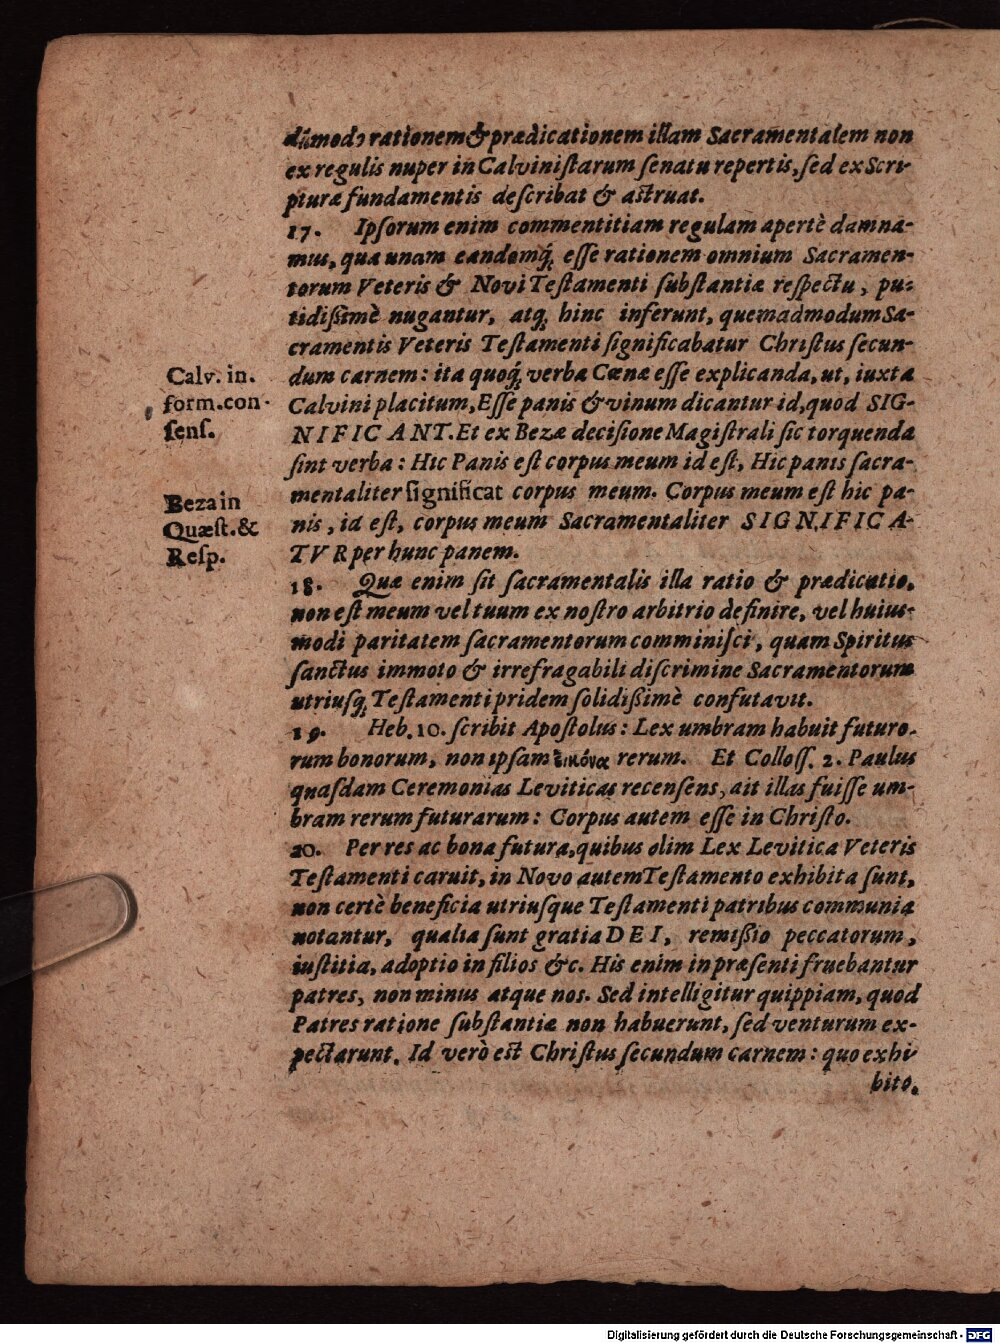 dūmodo rationem & prædicationem illam Sacramentalem non
ex regulis nuper in Calviniſtarum ſenatu repertis, ſed ex Scri-
pturæ fundamentis deſcribat & aſtruat.
17. Ipſorum enim commentitiam regulam apertè damna-
mus, qua unam eandemq́; eſſe rationem omnium Sacramen-
torum Veteris & Novi Teſtamenti ſubſtantiæ reſpectu, pu-
tidißimè nugantur, atq; hinc inferunt, quemadmodum Sa-
cramentis Veteris Teſtamenti ſignificabatur Chriſtus ſecun-
dum carnem: ita quoq́; verba Cœnæ eſſe explicanda, ut, iuxta
Calvini placitum, Eſſe panis & vinum dicantur id, quod SIG-
NIFICANT. Et ex Bezæ deciſione Magiſtrali ſic torquenda
ſint verba: Hic Panis eſt corpus meum id eſt, Hic panis ſacra-
mentaliter ſignificat corpus meum. Corpus meum eſt hic pa-
nis, id eſt, corpus meum Sacramentaliter SIGNIFICA-
TVR per hunc panem.
Calv. in.
form. con-
ſenſ.
Beza in
Quæſt. &
Reſp.
18. Quæ enim ſit ſacramentalis illa ratio & prædicatio,
non eſt meum vel tuum ex noſtro arbitrio definire, vel huius-
modi paritatem ſacramentorum comminiſci, quam Spiritus
ſanctus immoto & irrefragabili diſcrimine Sacramentorum
utriuſq; Teſtamenti pridem ſolidißimè confutavit.
19. Heb. 10. ſcribit Apoſtolus: Lex umbram habuit futuro-
rum bonorum, non ipſam εἰκόνα rerum. Et Coloſſ. 2. Paulus
quaſdam Ceremonias Leviticas recenſens, ait illas fuiſſe um-
bram rerum futurarum: Corpus autem eſſe in Chriſto.
20. Per res ac bona futura, quibus olim Lex Levitica Veteris
Teſtamenti caruit, in Novo autem Teſtamento exhibita ſunt,
non certè beneficia utriuſque Teſtamenti patribus communia
notantur, qualia ſunt gratia DEI, remißio peccatorum,
iuſtitia, adoptio in filios &c. His enim in præſenti fruebantur
patres, non minus atque nos. Sed intelligitur quippiam, quod
Patres ratione ſubſtantiæ non habuerunt, ſed venturum ex-
pectarunt. Id verò eſt Chriſtus ſecundum carnem: quo exhi-
bito,
Digitalisierung gefördert durch die Deutsche Forschungsgemeinschaft - DFG